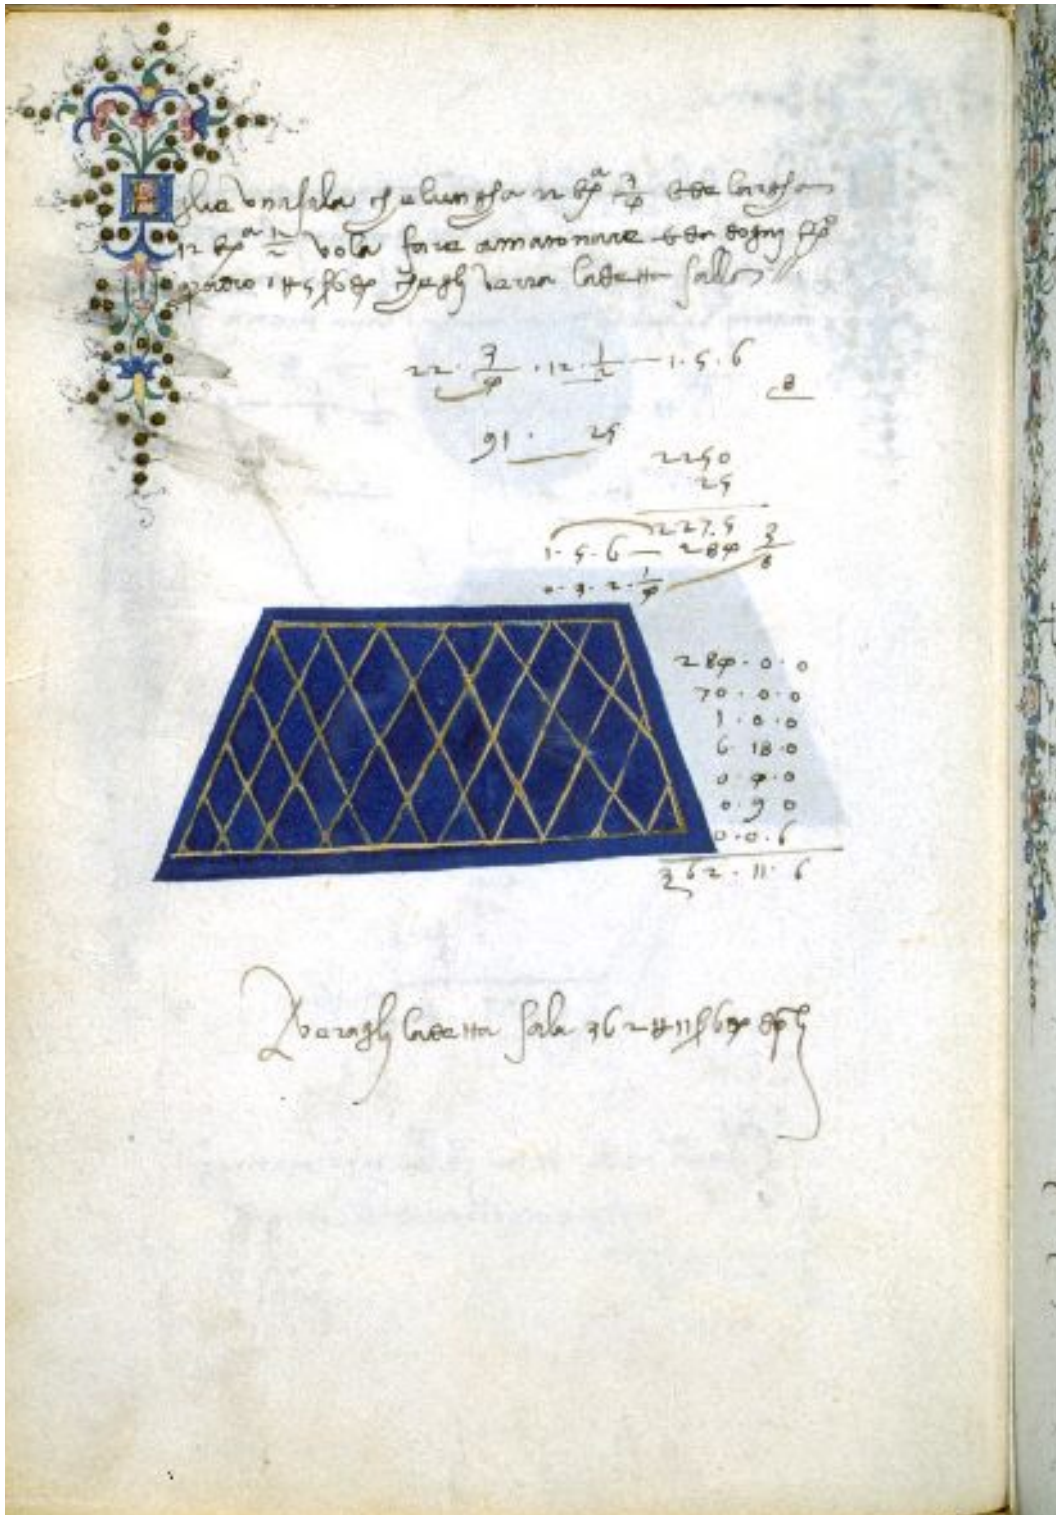 Eglie una sala che lungha 22 bra 3/4 ede largha
12 bra 1/2 vola fare amatonare eda dogni bro
quadro 1 5 6 che gli verra la detta salla
22 · 3/4 · 12 · 1/2 — 1 · 5 · 6
8
91 · 25
2250
25
227.5
1 · 5 · 6 — 284 3/8
0 · 3 · 2 · 1/4
284 · 0 · 0
70 · 0 · 0
1 · 0 · 0
6 · 18 · 0
0 · 4 · 0
0 · 9 · 0
0 · 0 · 6
362 · 11 · 6
Veragli la detta sala 362 11 6